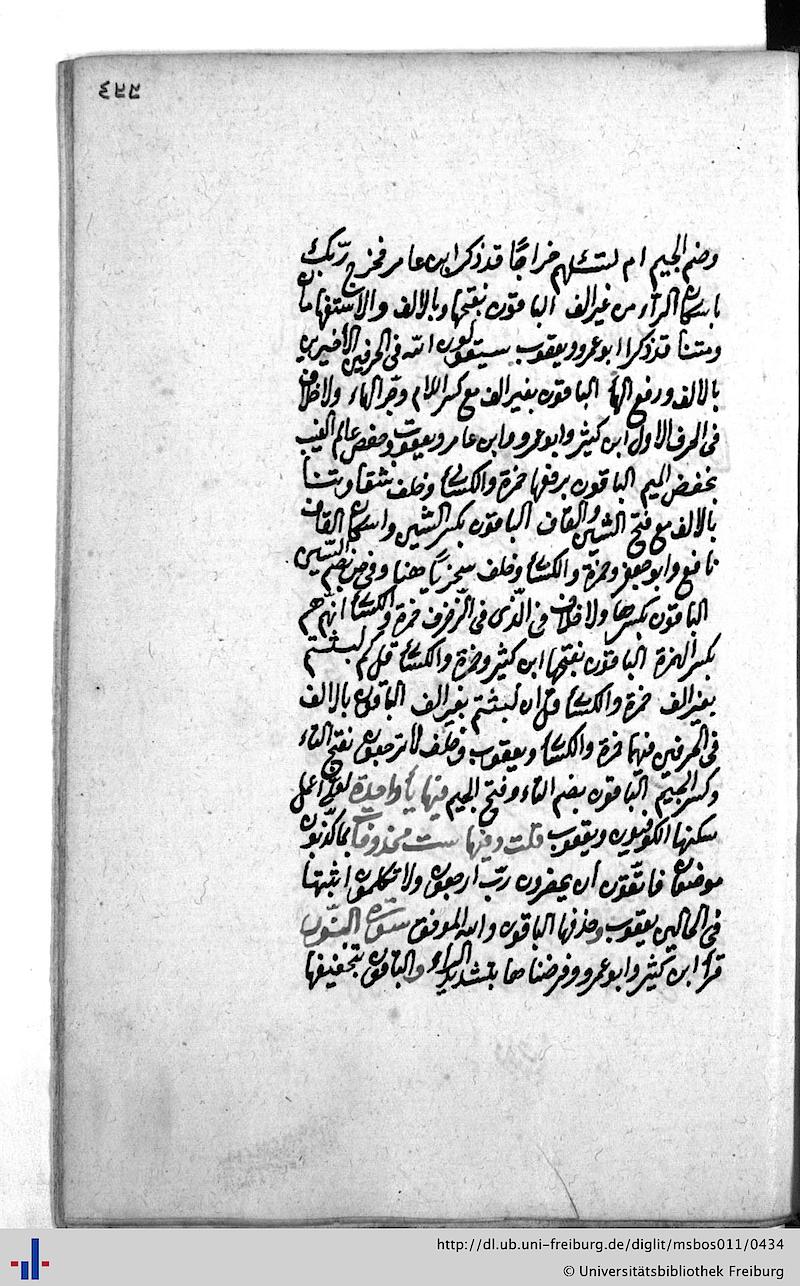 وضم الجيم ام تسئلهم خراجًا قد ذكر ابن عامر فخرج ربّك
باسكان الرآء من غير الف الباقون بفتحها وبالالف والاستفهامان
ومتنا قد ذكرا ابو عمرو ويعقوب سيقولون الله فى الحرفين الأخيرين
بالالف ورفع الهآ الباقون بغير الف مع كسر اللام وجرّ الهاء ولا خلاف
فى الحرف الاول ابن كثير وابو عمرو وابن عامر ويعقوب وحفص عالم الغيب
بخفض الميم الباقون برفعها حمزة والكسائى وخلف شقاوتنا
بالالف مع فتح الشين والقاف الباقون بكسر الشين واسكان القاف
نافع وابو جعفر وحمزة والكسائى وخلف سخريًا هنا وفى ص بضم السّين
الباقون بكسرها ولا خلاف فى الّذى فى الزخرف حمزة والكسائى انّهم هم
بكسر الهمزة الباقون بفتحها ابن كثير وحمزة والكسائى قل كم لبثتم
بغير الف حمزة والكسائى قل ان لبثتم بغير الف الباقون بالالف
فى الحرفين فيهما حمزة والكسائى ويعقوب وخلف لا ترجعون بفتح التاء
وكسر الجيم الباقون بضم التاء وفتح الجيم فيها يأ واحدة لعلّى اعمل
سكنها الكوفيون ويعقوب قلت وفيها ست محذوفات بما كذّبون
موضعان فاتّقون ان يحضرون ربّ ارجعون ولا تكلمون اثبتها
فى الحالين يعقوب وحذفها الباقون والله الموفق سورة النّور
قرأ ابن كثير وابو عمرو وفرضناها بتشديد الراء والباقون بتخفيفها
http://dl.ub.uni-freiburg.de/diglit/msbos011/0434
© Universitätsbibliothek Freiburg